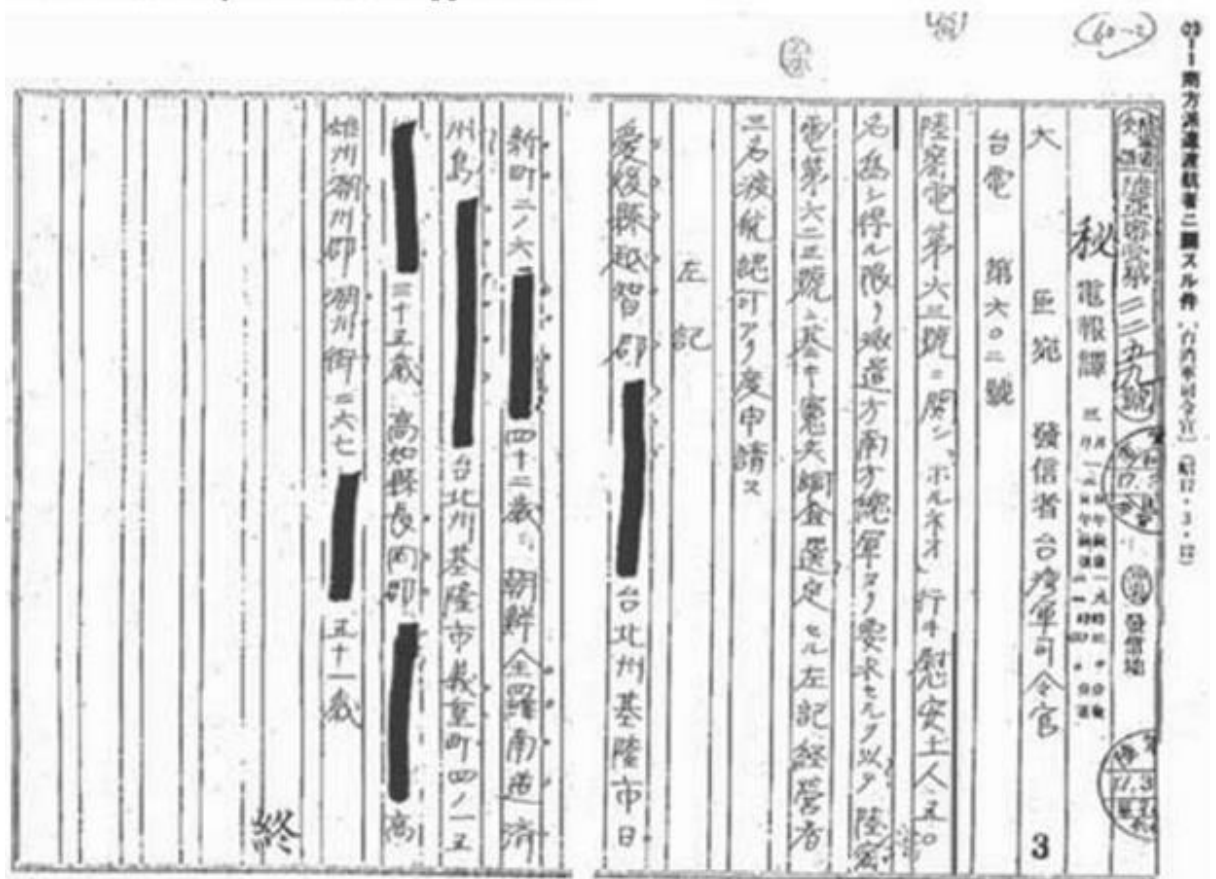 03-1 南方派遣渡航者ニ関スル件（台湾軍司令官）（昭17・3・12）
60-2
秘 電報譯
發信地
大臣宛 發信者 台湾軍司令官
3
台電 第六〇二號
陸密電第六三號ニ関シ「ボルネオ」行キ慰安土人五〇
名為シ得ル限リ派遣方南方總軍ヨリ要求セルヲ以テ陸密
電第六二三號ニ基キ憲兵調査選定セル左記経営者
三名渡航認可アリ度申請ス
左記
愛媛縣越智郡 台北州基隆市日
新町二ノ六 四十二歳 朝鮮全羅南道済
州島 台北州基隆市義重町四ノ一五
三十五歳 高知縣長岡郡 高
雄州潮州郡潮州街二六七 五十一歳
終